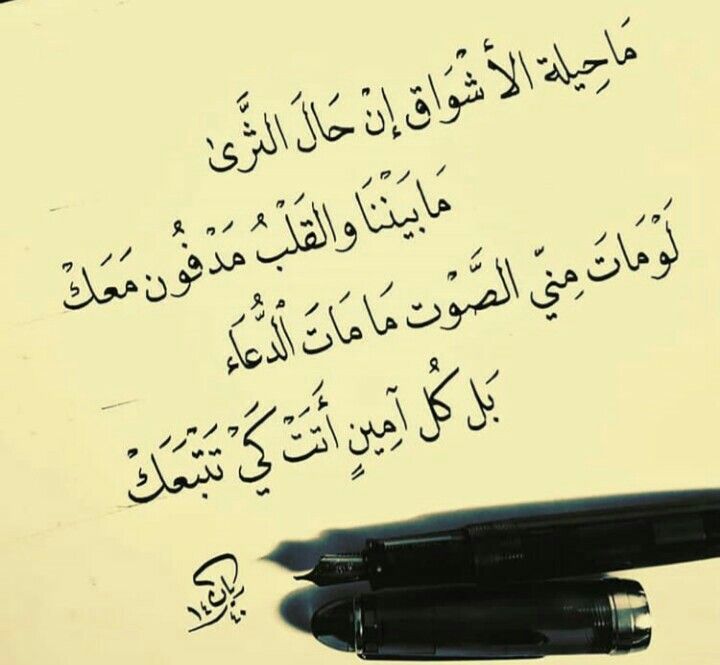 مَا حِيلة الأشْوَاق إنْ حَالَ الثَّرىٰ
مَا بَيْنْنَا والقَلْبُ مَدْفُون مَعَكْ
لَوْ مَاتَ مِنيّ الصَّوْت مَا مَاتَ الْدُّعَاء
بَل كُل آمِينٍ أَتَتْ كَيْ تَتْبَعَكْ